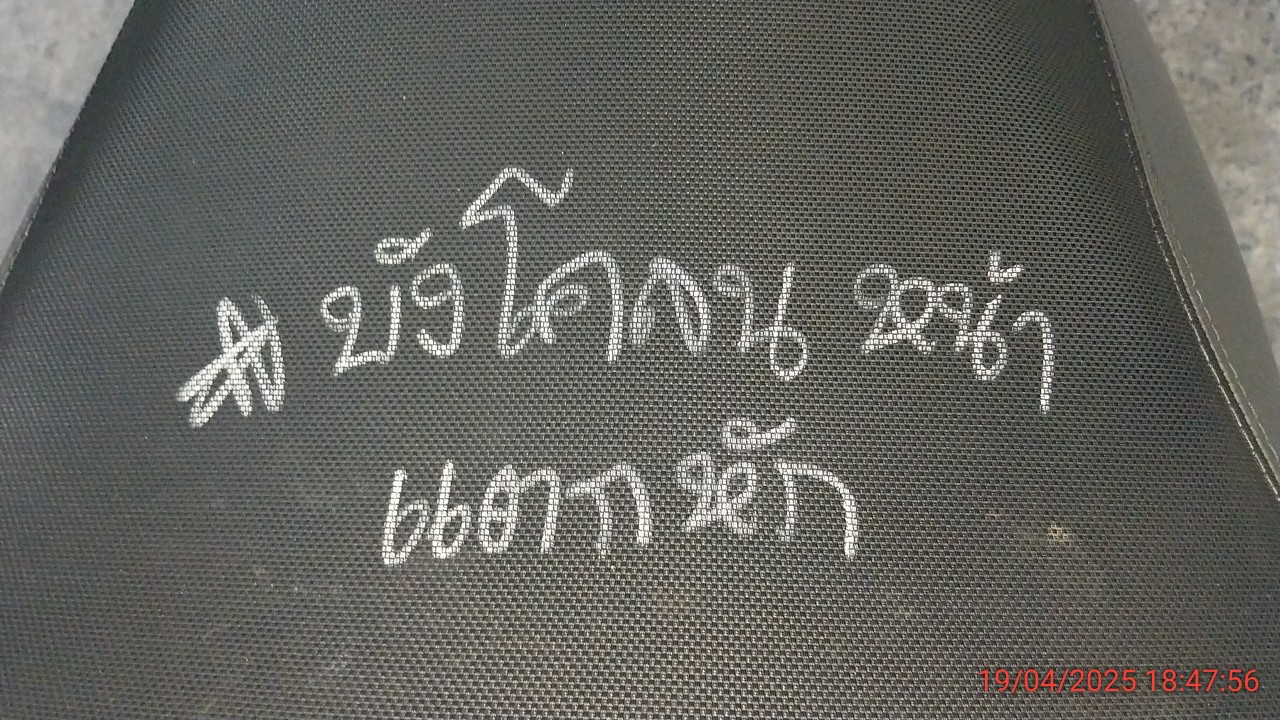 # บังโคลน หน้า
แตก หัก
19/04/2025 18:47:56